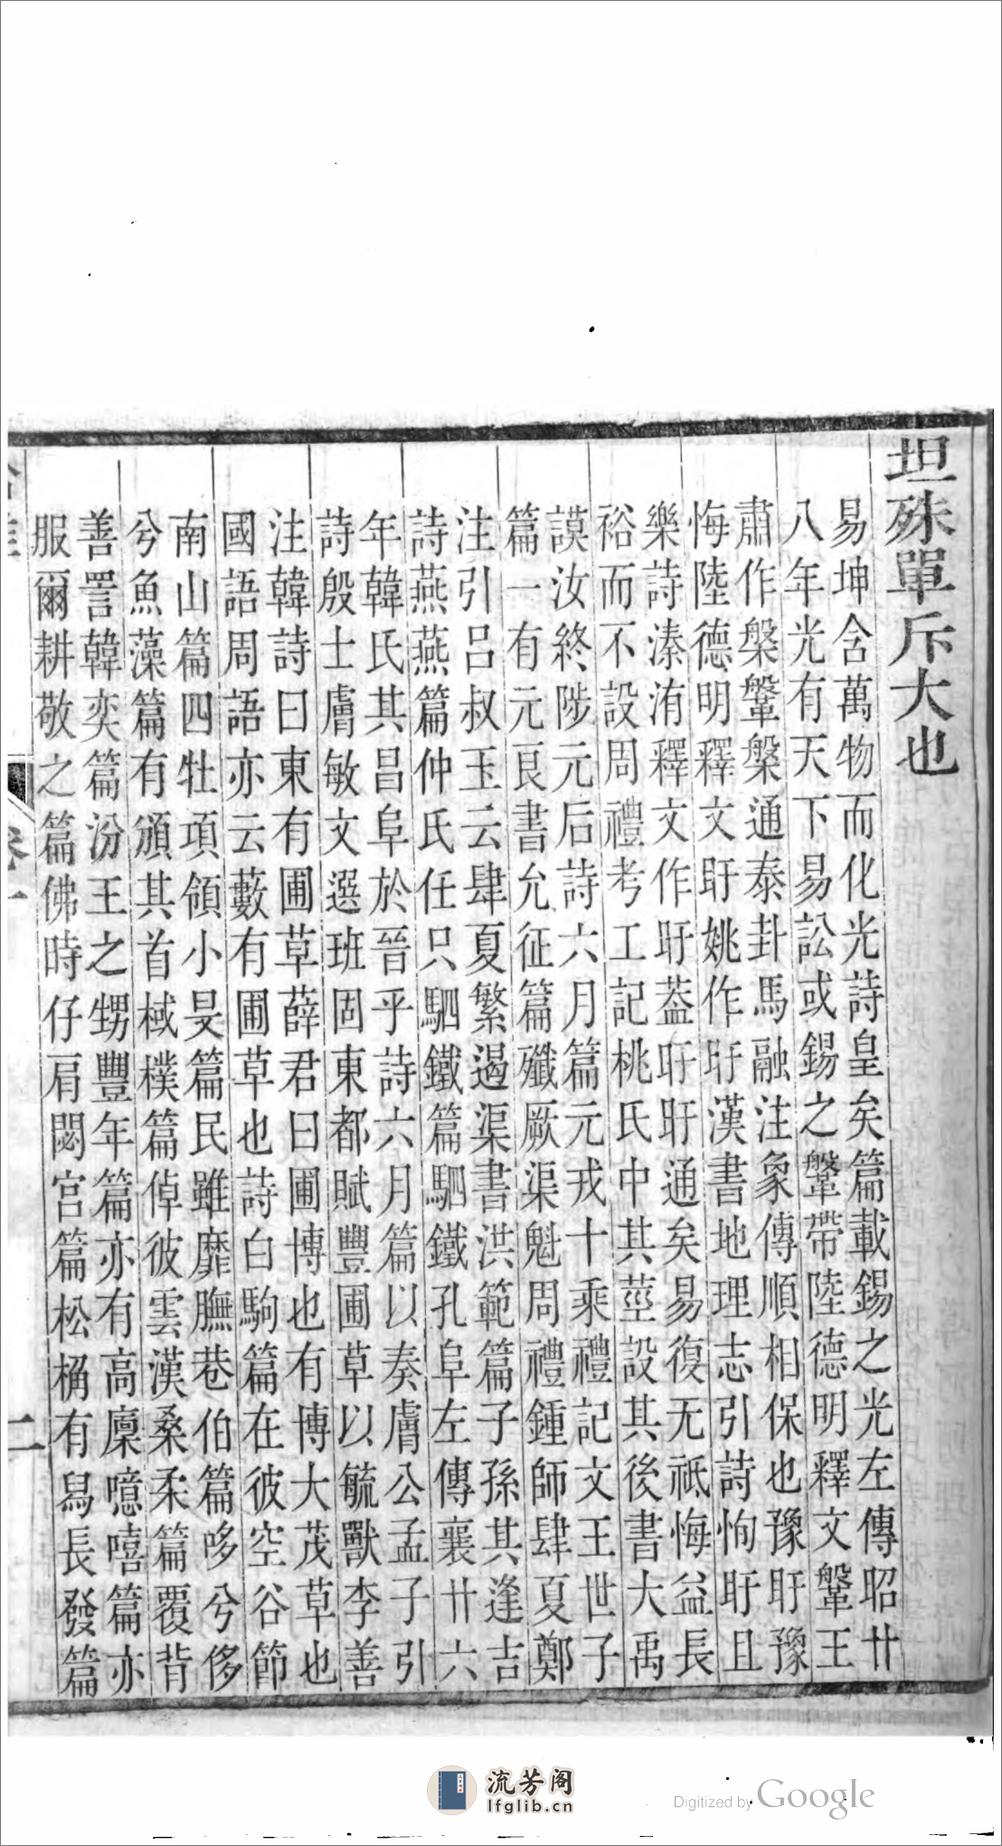 坦殊單斥大也
易坤含萬物而化光詩皇矣篇載錫之光左傳昭廿
八年光有天下易訟或錫之鞶帶陸德明釋文鞶王
肅作槃鞶槃通泰卦馬融注象傳順相保也豫盱豫
悔陸德明釋文盱姚作旴漢書地理志引詩恂盱且
樂詩溱洧釋文作盱葢旴盱通矣易復无祇悔益長
裕而不設周禮考工記桃氏中其莖設其後書大禹
謨汝終陟元后詩六月篇元戎十乘禮記文王世子
篇一有元良書允征篇殲厥渠魁周禮鍾師肆夏鄭
注引呂叔玉云肆夏繁遏渠書洪範篇子孫其逢吉
詩燕燕篇仲氏任只駟鐵篇駟鐵孔阜左傳襄廿六
年韓氏其昌阜於晉乎詩六月篇以奏膚公孟子引
詩殷士膚敏文選班固東都賦豐圃草以毓獸李善
注韓詩曰東有圃草薛君曰圃博也有博大茂草也
國語周語亦云藪有圃草也詩白駒篇在彼空谷節
南山篇四牡項領小旻篇民雖靡膴巷伯篇哆兮侈
兮魚藻篇有頒其首棫樸篇倬彼雲漢桑柔篇覆背
善詈韓奕篇汾王之甥豐年篇亦有高廩噫嘻篇亦
服爾耕敬之篇佛時仔肩閟宮篇松桷有舄長發篇
卷一
二
流芳阁
lfglib.cn
Digitized by Google